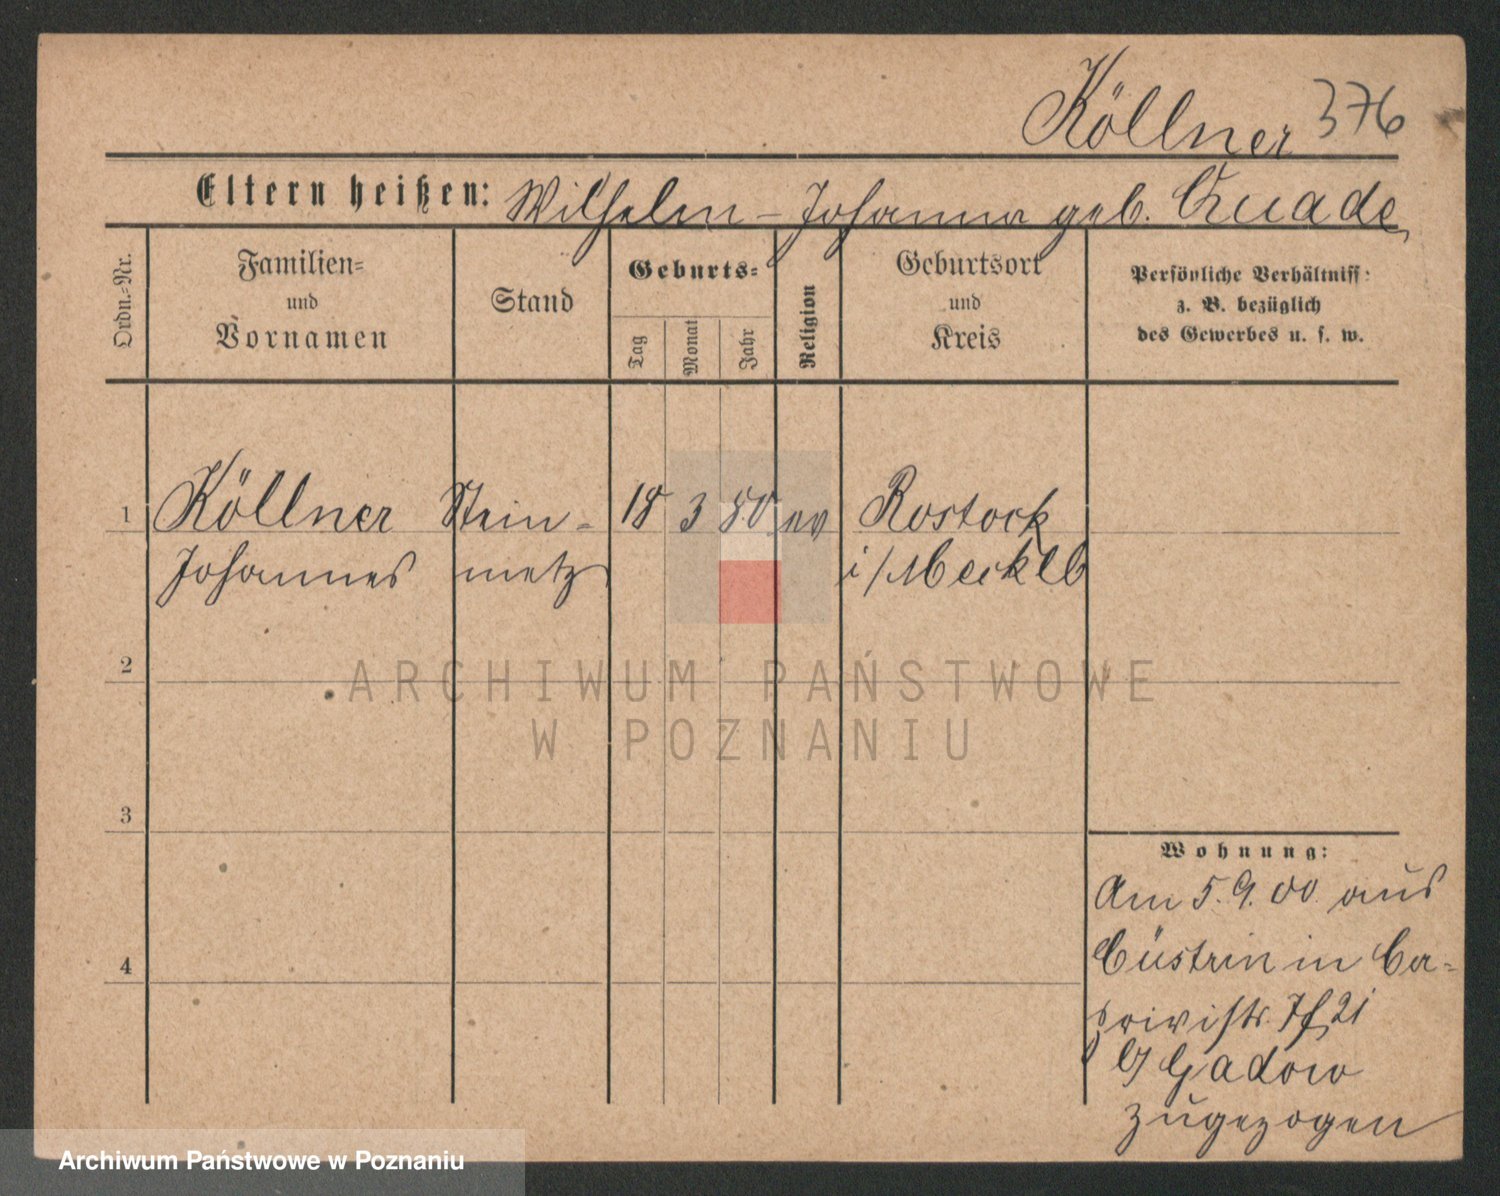 Köllner 376
Eltern heißen: Wilhelm – Johanna geb. Quade
Ordn.-Nr.
Familien-
und
Vornamen
Stand
Geburts-
Tag
Monat
Jahr
Religion
Geburtsort
und
Kreis
Persönliche Verhältniss:
z. B. bezüglich
des Gewerbes u. s. w.
1 Köllner Stein- 18 3 80 ev Rostock
Johannes metz i/Mecklb
2
3
4
Wohnung:
Am 5.9.00. aus
Cüstrin in Ca-
privistr. 21
b/ Gadow
zugezogen
ARCHIWUM PAŃSTWOWE
W POZNANIU
Archiwum Państwowe w Poznaniu